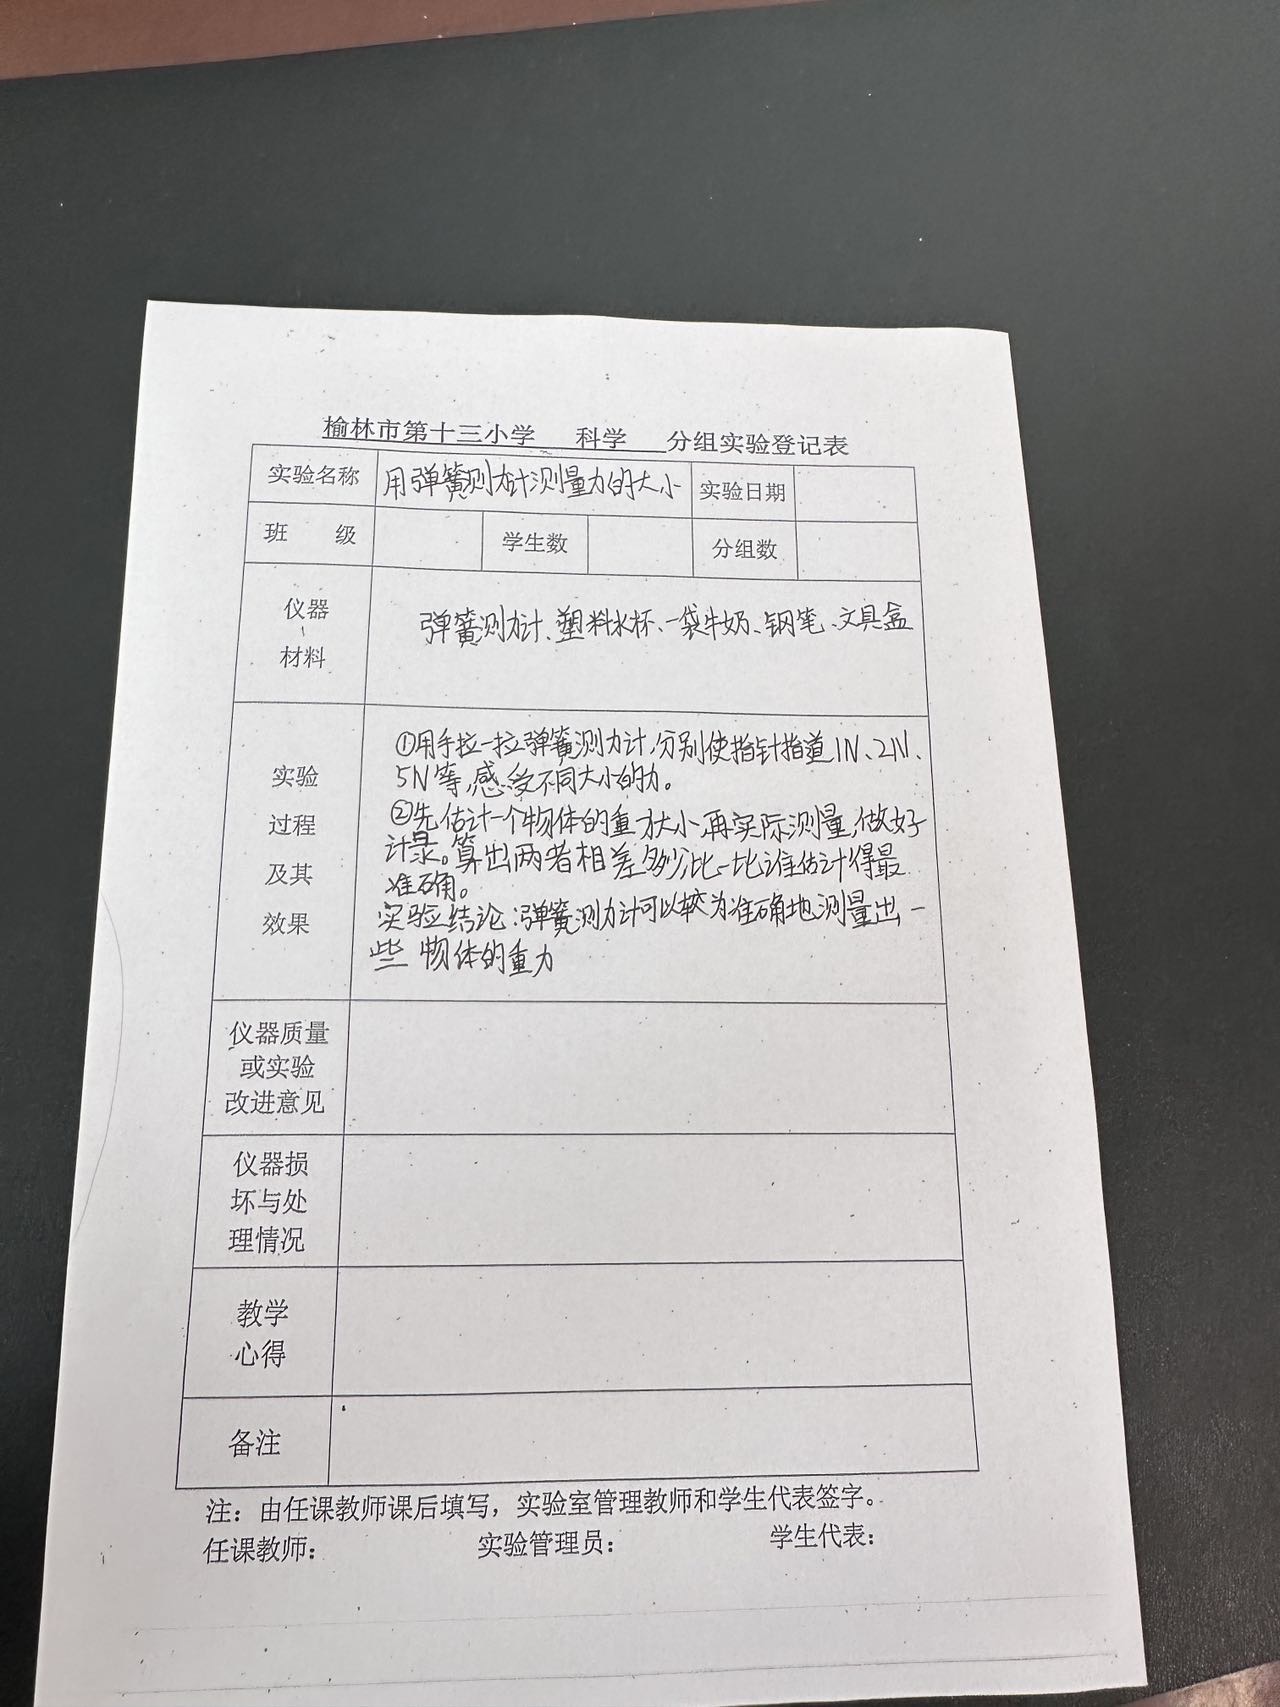 榆林市第十三小学 科学 分组实验登记表
实验名称 用弹簧测力计测量力的大小 实验日期
班 级 学生数 分组数
仪器
、
材料
弹簧测力计、塑料水杯、一袋牛奶、钢笔、文具盒
实验
过程
及其
效果
①用手拉一拉弹簧测力计,分别使指针指道1N、2N、
5N等,感受不同大小的力。
②先估计一个物体的重力大小,再实际测量,做好
计录。算出两者相差多少,比一比谁估计得最
准确。
实验结论:弹簧测力计可以较为准确地测量出一
些物体的重力
仪器质量
或实验
改进意见
仪器损
坏与处
理情况
教学
心得
备注
注：由任课教师课后填写，实验室管理教师和学生代表签字。
任课教师： 实验管理员： 学生代表：